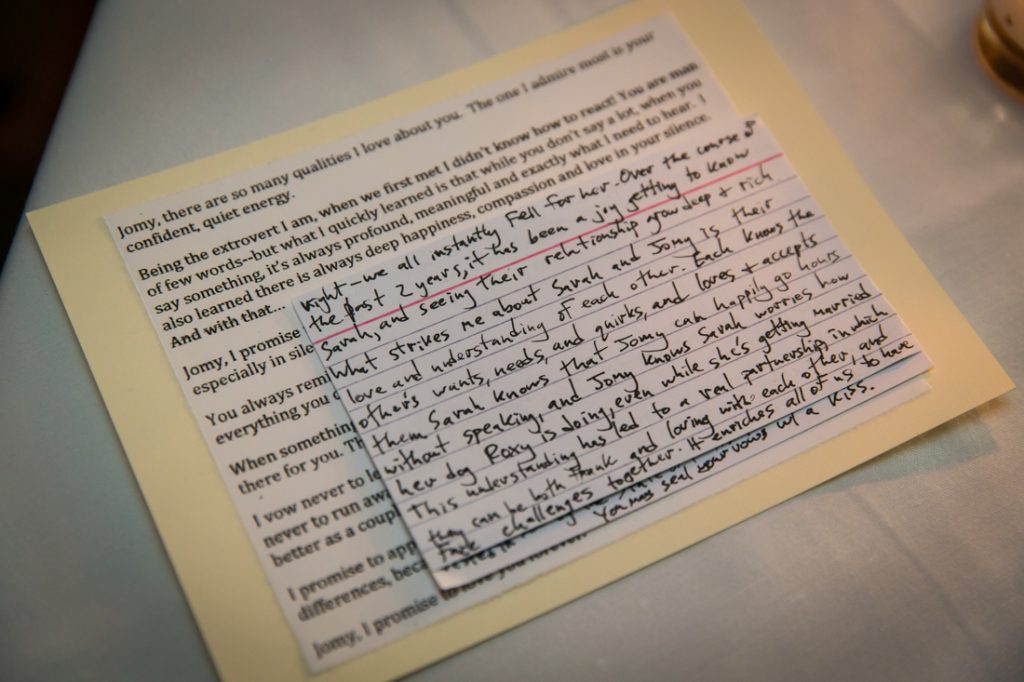 Jomy, there are so many qualities I love about you. The one I admire most is your
confident, quiet energy.
Being the extrovert I am, when we first met I didn't know how to react! You are man
of few words--but what I quickly learned is that while you don't say a lot, when you
say something, it's always profound, meaningful and exactly what I need to hear. I
also learned there is always deep happiness, compassion and love in your silence.
And with that...
Jomy, I promise
especially in sile
You always remi
everything you
When something
there for you. Th
I vow never to le
never to run awa
better as a coup
I promise to app
differences, beca
Jomy, I promise to love you forever.
right—we all instantly fell for her. Over the course of
the past 2 years, it has been a joy getting to know
Sarah, and seeing their relationship grow deep + rich
What strikes me about Sarah and Jomy is their
love and understanding of each other. Each knows the
other's wants, needs, and quirks, and loves + accepts
them. Sarah knows that Jomy can happily go hours
without speaking, and Jomy knows Sarah worries how
her dog Roxy is doing, even while she's getting married
This understanding has led to a real partnership, in which
they can be both frank and loving with each other, and
face challenges together. It enriches all of us to have
You may seal your vows w/ a kiss.